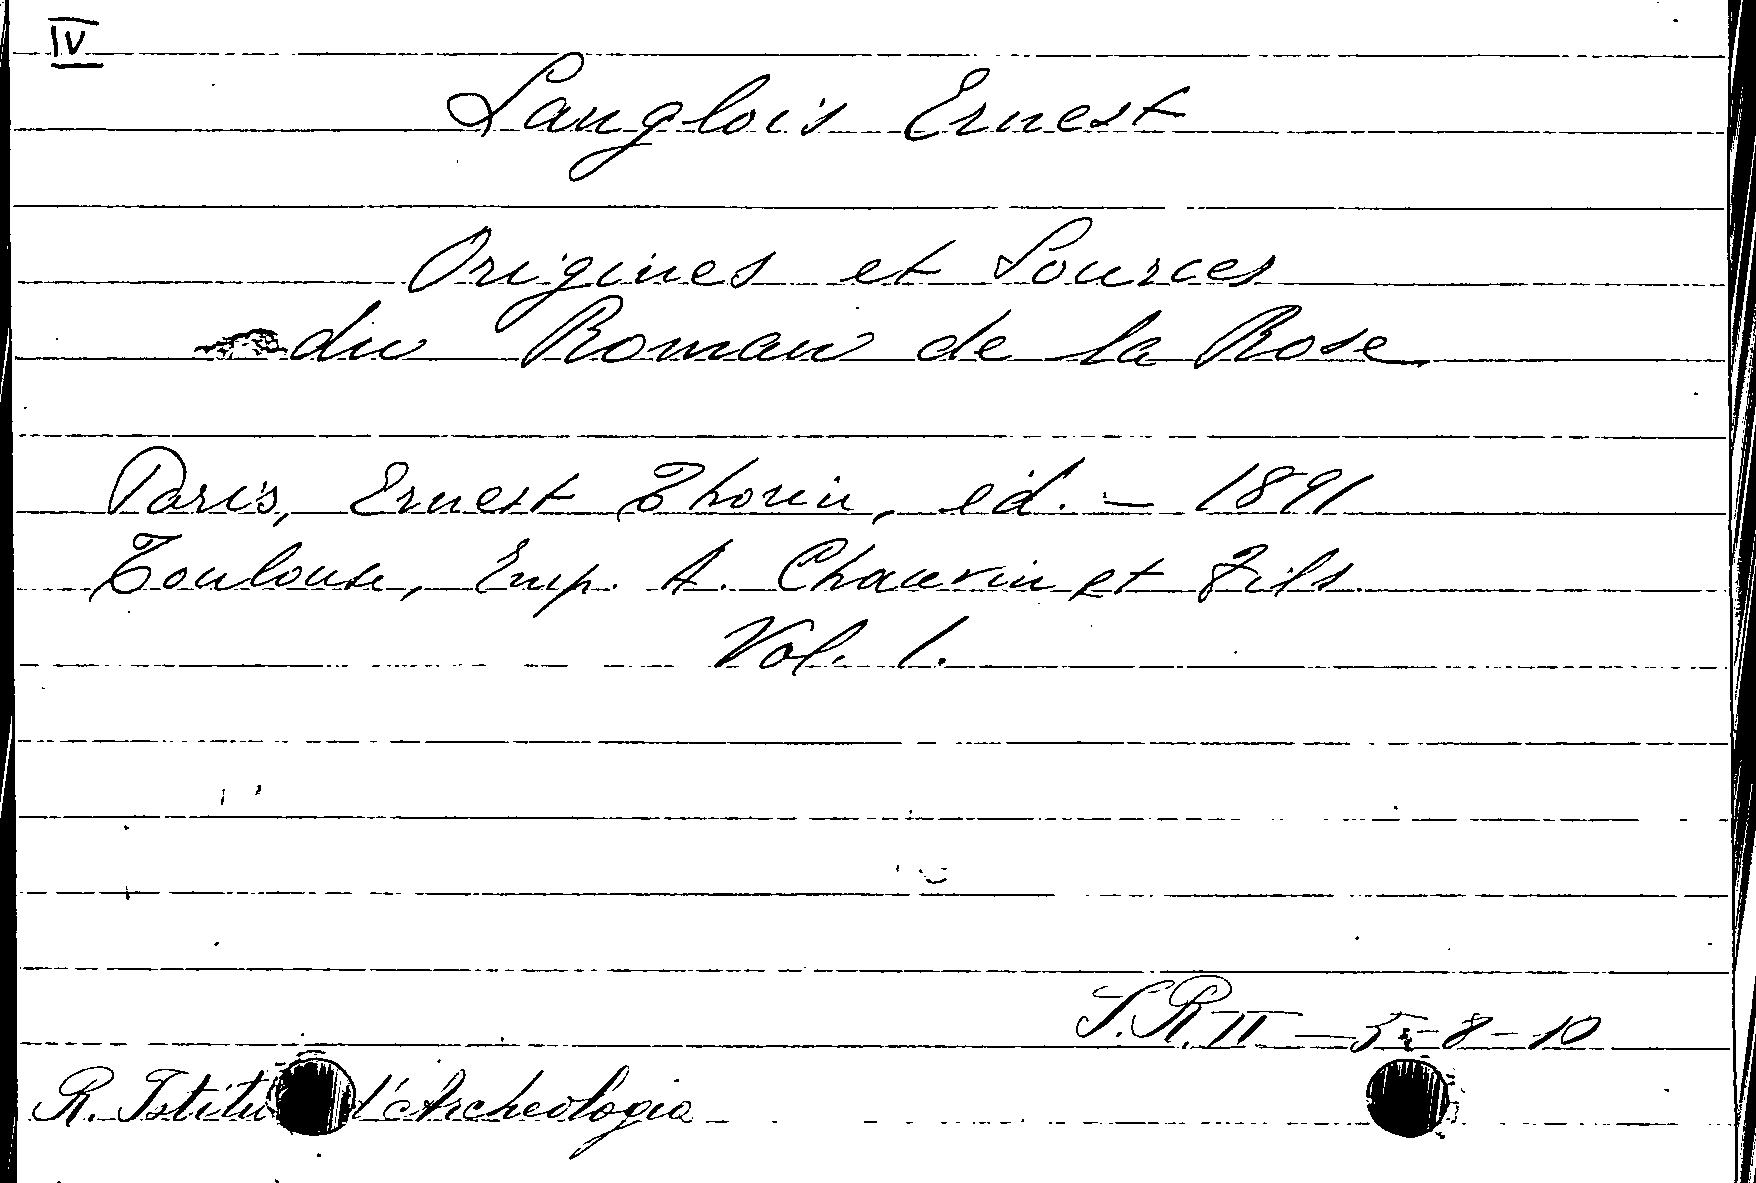 IV
Langlois Ernest
Origines et Sources
du Roman de la Rose
Paris, Ernest Thorin, éd. – 1891
Toulouse, Imp. A. Chauvin et Fils.
Vol. 1.
S.R. II – 5 - 8 - 10
R. d'Archeologia